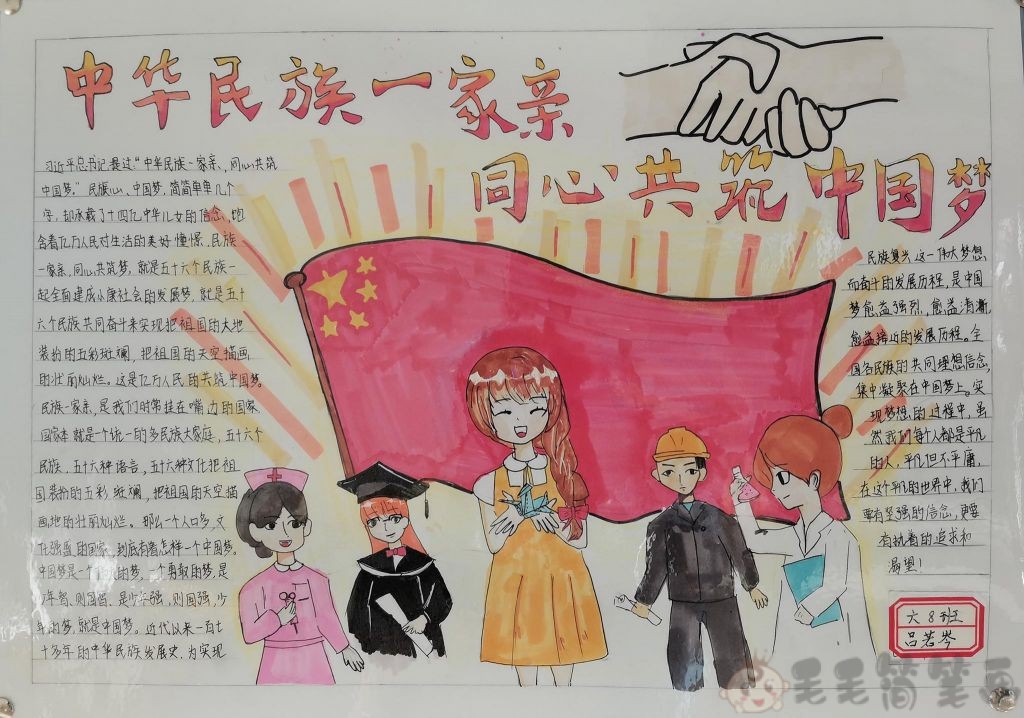 中华民族一家亲
同心共筑中国梦
习近平总书记提过:“中华民族一家亲,同心共筑
中国梦。”民族心、中国梦,简简单单几个
字,却承载了十四亿中华儿女的信念,饱
含着亿万人民对生活的美好憧憬,民族
一家亲,同心共筑梦,就是五十六个民族一
起全面建成小康社会的发展梦,就是五十
六个民族共同奋斗来实现把祖国的大地
装扮的五彩斑斓,把祖国的天空描画
的壮丽灿烂。这是亿万人民的共筑中国梦。
民族一家亲,是我们时常挂在嘴边的国家,
国家本就是个统一的多民族大家庭,五十六个
民族,五十六种语言,五十六种文化把祖
国装扮的五彩斑斓,把祖国的天空描
画地的壮丽灿烂。那么一个人口多,文
化强盛的国家,到底有着怎样一个中国梦。
中国梦是一个的梦,一个勇敢的梦,是
少年智、则国智、是少年强、则国强,少
年的梦,就是中国梦。近代以来一百七
十多年的中华民族发展史,为实现
民族复兴这一伟大梦想
而奋斗的发展历程,是中国
梦愈益强烈,愈益清晰,
愈益接近的发展历程。全
国各民族的共同理想信念,
集中凝聚在中国梦上。实
现梦想的过程中,虽
然我们每个人都是平凡
的人,平凡但不平庸,
在这个平凡的世界中,我们
要有坚强的信念,更要
有执着的追求和
渴望!
六8班
吕若岑
毛毛简笔画